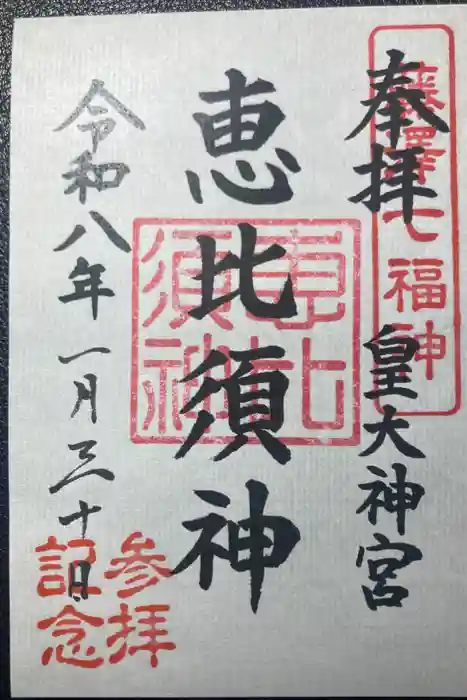 奉拝
藤澤七福神
皇大神宮
恵比須神
恵比須神
令和八年一月三十日
参拝
記念